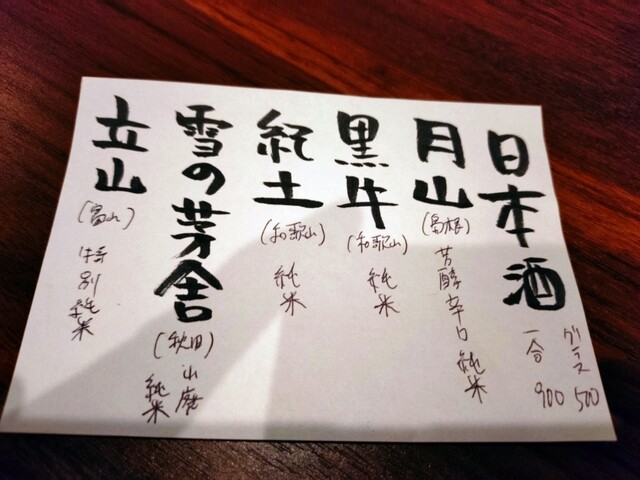 日本酒
グラス 500
一合 900
月山
(島根)
芳醇辛口純米
黒牛
(和歌山)
純米
紀土
(和歌山)
純米
雪の茅舎
(秋田)
山廃
純米
立山
(富山)
特別純米